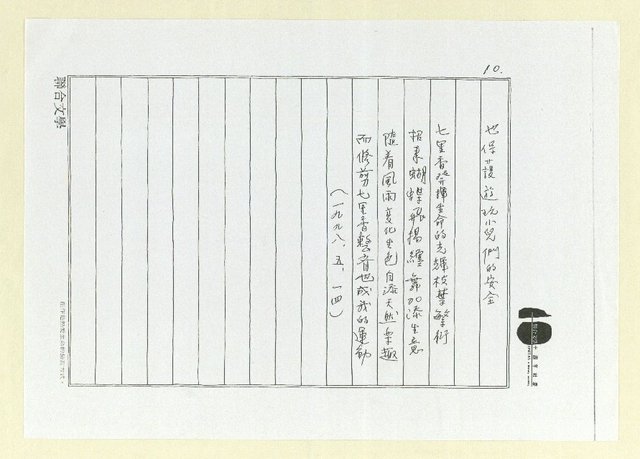 10.
也保護遊玩小兒們的安全
七里香發揮生命的光輝枝葉繁衍
招來蝴蝶飛揚纏舞加添生意
隨着風雨變化生色自添天然樂趣
而修剪七里香聲音也成我的運動
(一九九八、五、一四)
聯合文學